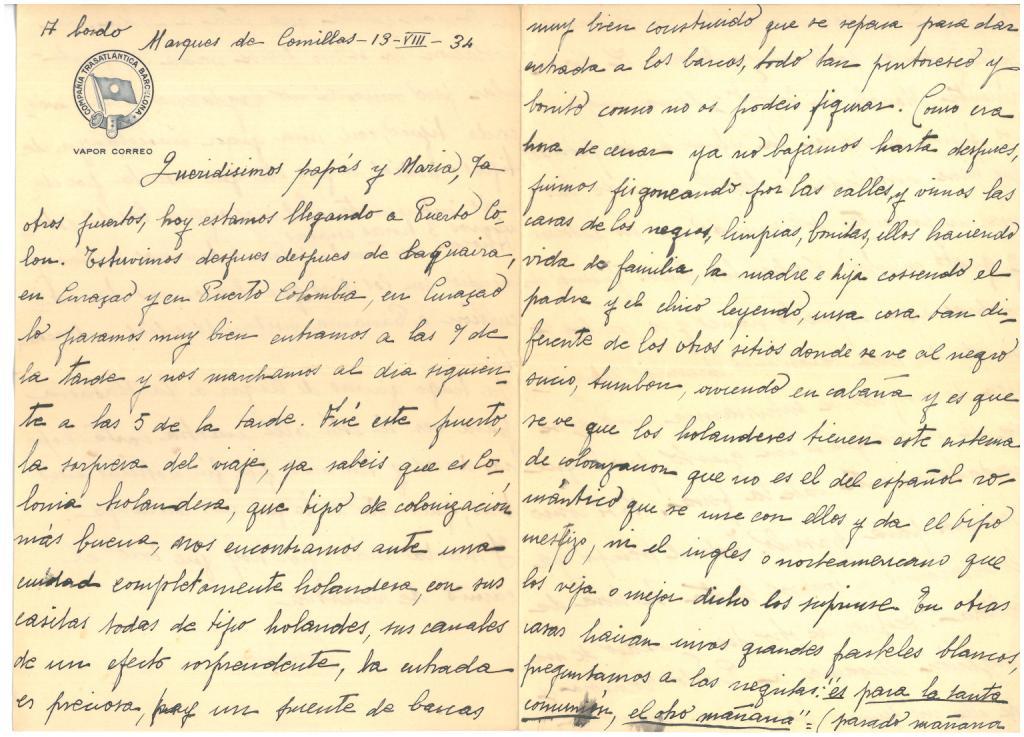 A bordo
Marques de Comillas - 19 - VIII - 34
COMPAÑIA TRASATLANTICA BARCELONA
VAPOR CORREO
Queridisimos papás y Maria, Ya
otros puertos, hoy estamos llegando a Puerto Co-
lon. Estuvimos despues despues de La Guaira,
en Curaçao y en Puerto Colombia, en Curaçao
lo pasamos muy bien entramos a las 7 de
la tarde y nos marchamos al dia siguien-
te a las 5 de la tarde. Fué este puerto,
la sorpresa del viaje, ya sabeis que es Co-
lonia holandesa, que tipo de colonización
más buena, nos encontramos ante una
cuidad completamente holandesa, con sus
casitas todas de tipo holandes, sus canales
de un efecto sorprendente, la entrada
es preciosa, hay un puente de barcas
muy bien construido que se separa para dar
entrada a los barcos, todo tan pintoresco y
bonito como no os podeis figurar. Como era
hora de cenar ya no bajamos hasta despues,
fuimos fisgoneando por las calles, y vimos las
casas de los negros, limpias, bonitas, ellos haciendo
vida de familia, la madre e hija cosiendo el
padre y el chico leyendo, una cosa tan di-
ferente de los otros sitios donde se ve al negro
sucio, tumbon, viviendo en cabaña y es que
se ve que los holandeses tienen este sistema
de colonizacion que no es el del español ro-
mántico que se une con ellos y da el tipo
mestizo, ni el ingles o norteamericano que
los veja o mejor dicho los suprime. En otras
casas hacian unos grandes pasteles blancos,
preguntamos a las negritas: "es para la santa
comunión, el otro mañana" = (pasado mañana